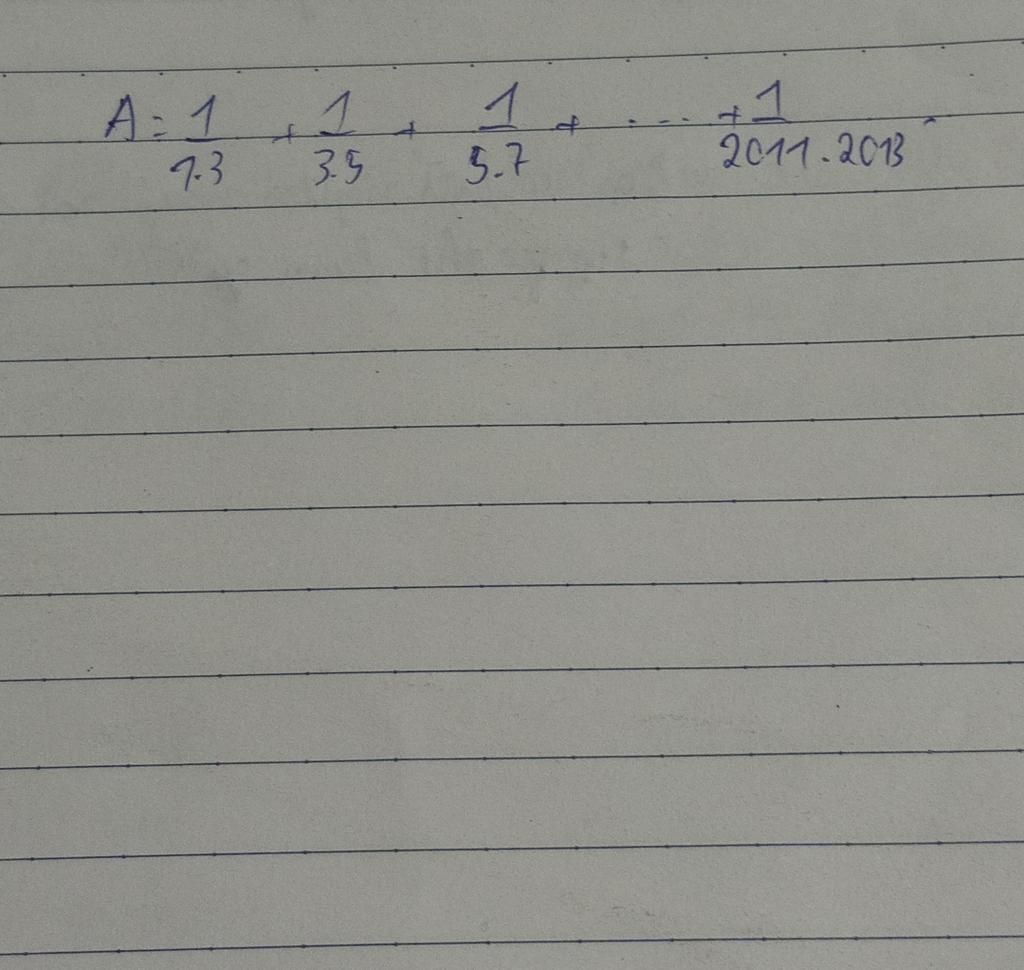 A = 1/1.3 + 1/3.5 + 1/5.7 + ..... + 1/2011.2013.